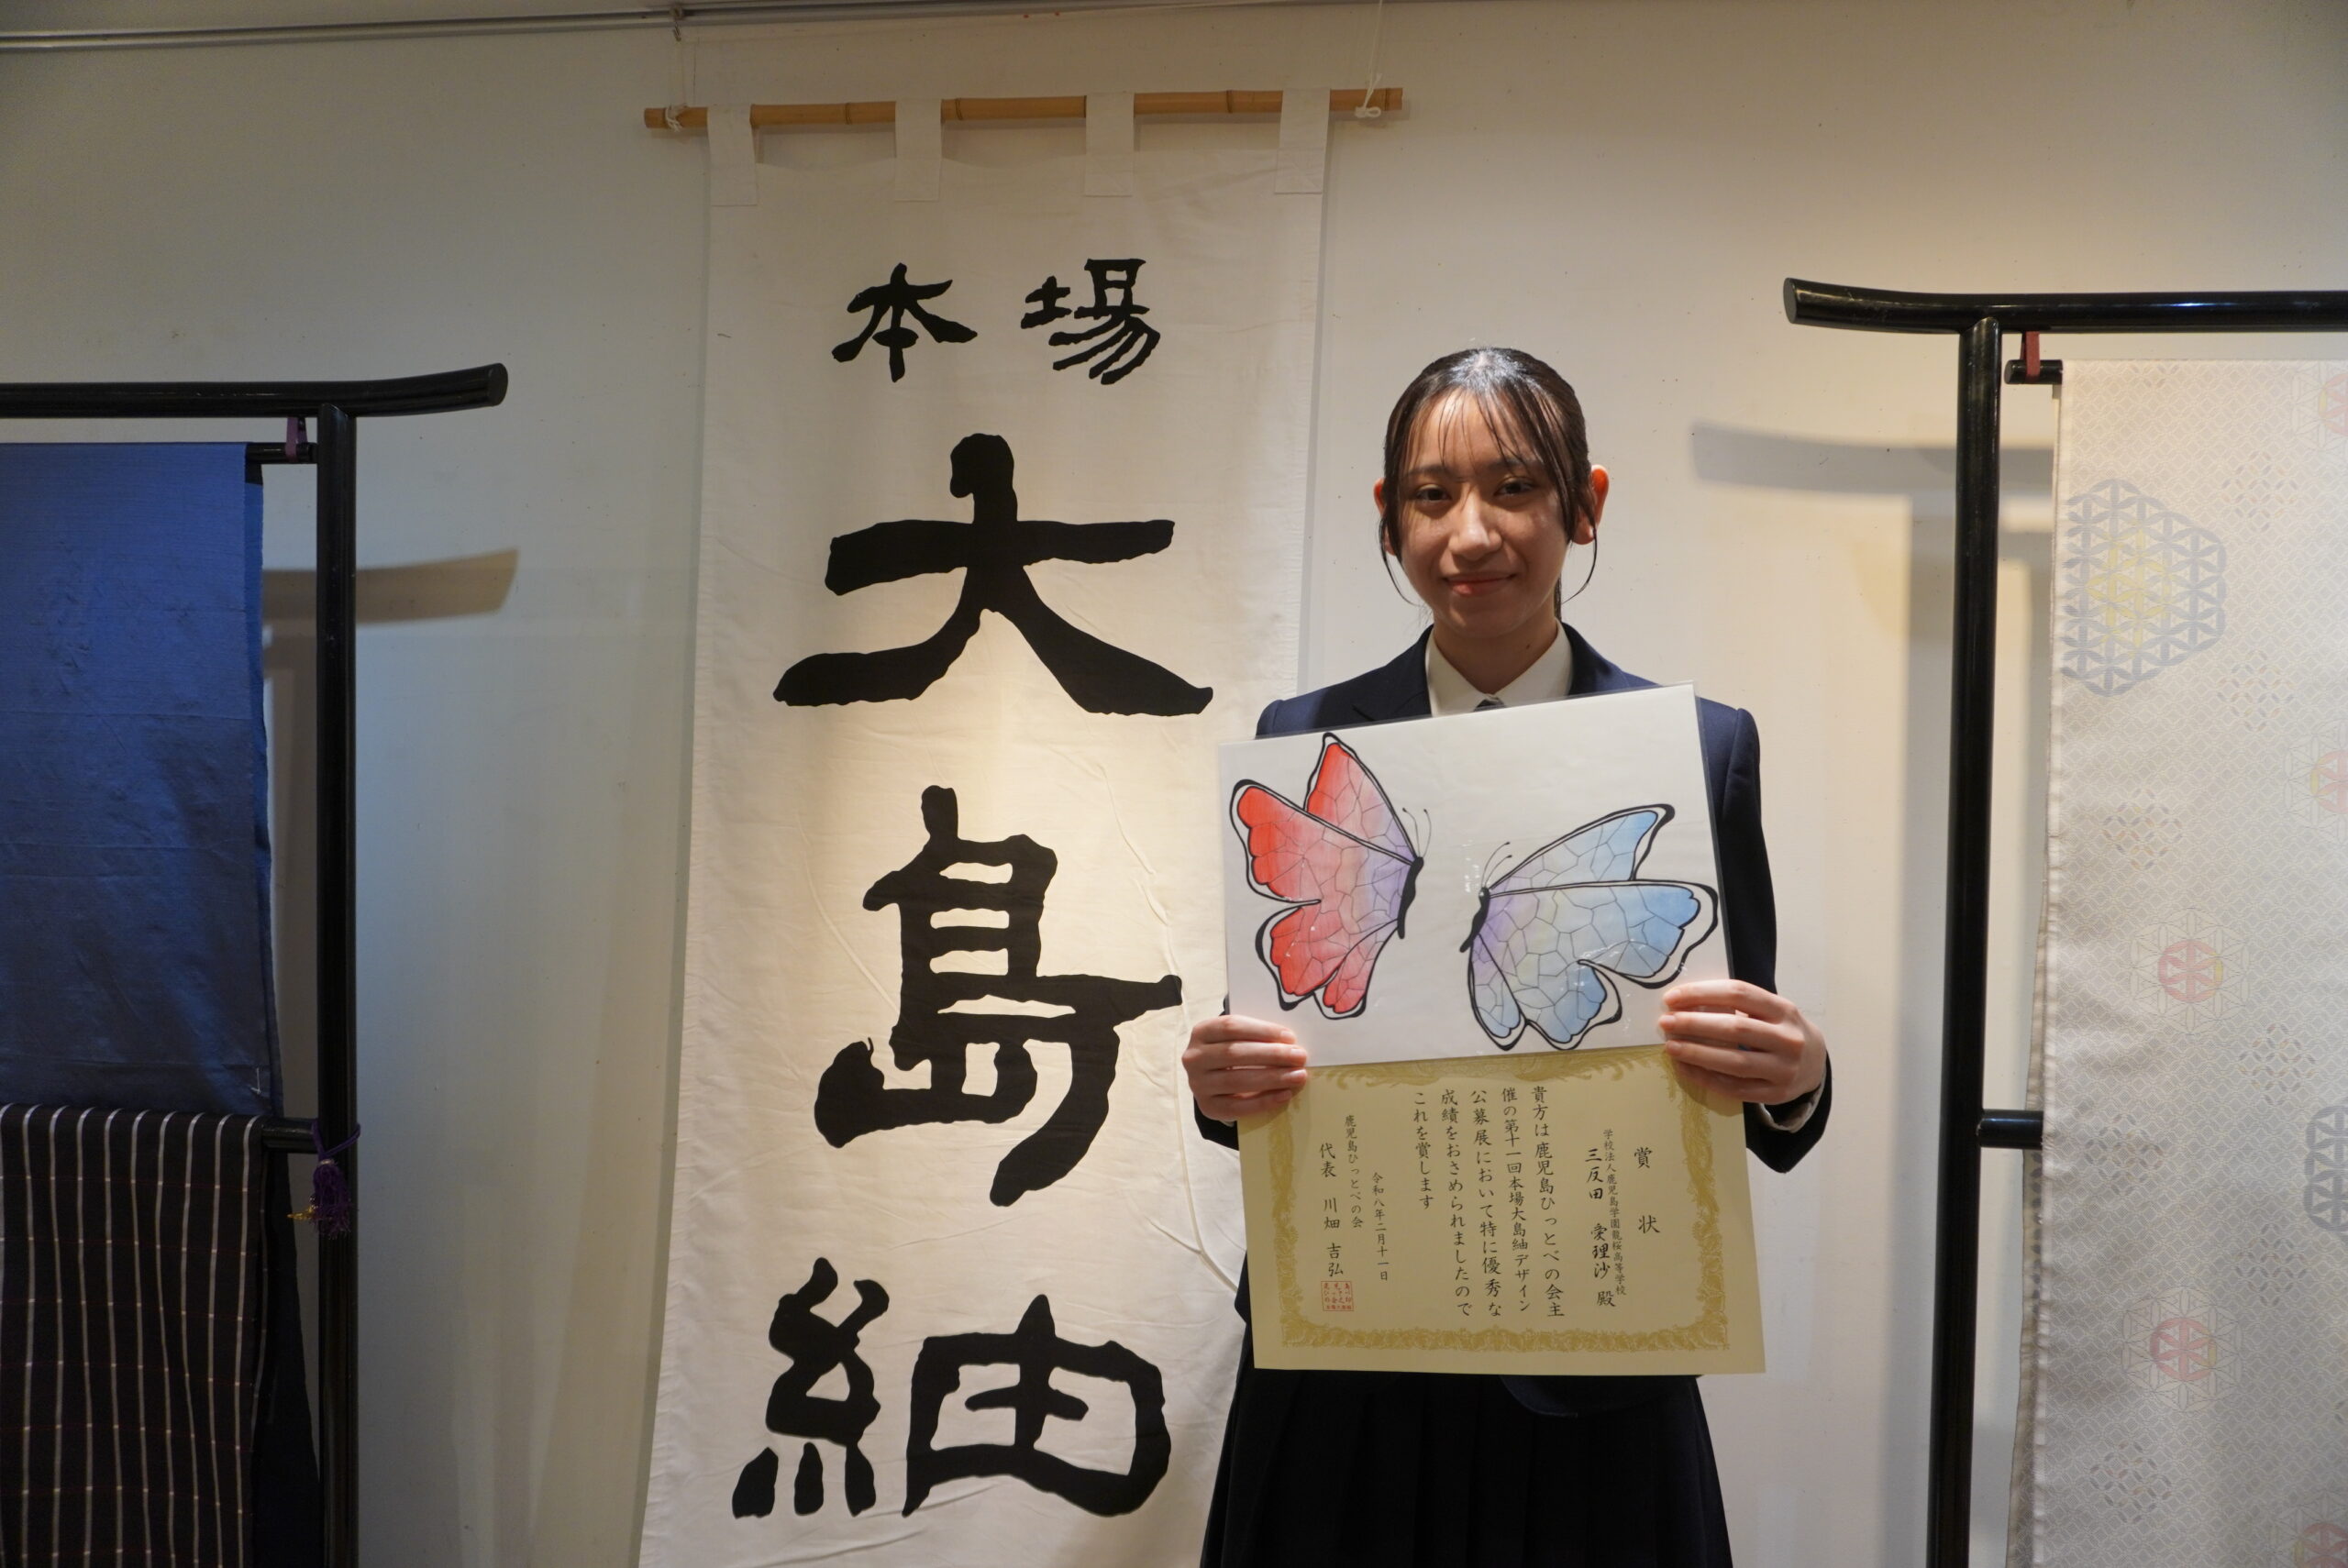 本場
大
島
紬
賞状
学校法人鹿児島学園龍桜高等学校
三反田 愛理沙 殿
貴方は鹿児島ひっとべの会主
催の第十一回本場大島紬デザイン
公募展において特に優秀な
成績をおさめられましたので
これを賞します
令和八年二月十一日
鹿児島ひっとべの会
代表 川畑 吉弘